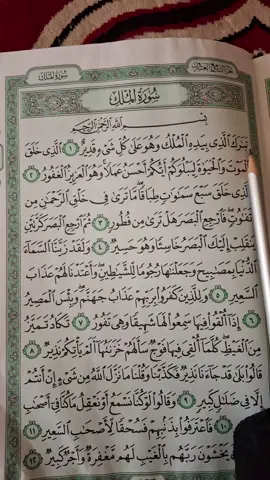 الجزء التاسع والعشرون
سورة الملك
سُورَةُ المُلْكِ
بِسْمِ اللَّهِ الرَّحْمَٰنِ الرَّحِيمِ
تَبَٰرَكَ الَّذِي بِيَدِهِ الْمُلْكُ وَهُوَ عَلَىٰ كُلِّ شَيْءٍ قَدِيرٌ ١ الَّذِي خَلَقَ
الْمَوْتَ وَالْحَيَوٰةَ لِيَبْلُوَكُمْ أَيُّكُمْ أَحْسَنُ عَمَلًا وَهُوَ الْعَزِيزُ الْغَفُورُ ٢
الَّذِي خَلَقَ سَبْعَ سَمَٰوَٰتٍ طِبَاقًا مَّا تَرَىٰ فِي خَلْقِ الرَّحْمَٰنِ مِن
تَفَٰوُتٍ فَارْجِعِ الْبَصَرَ هَلْ تَرَىٰ مِن فُطُورٍ ٣ ثُمَّ ارْجِعِ الْبَصَرَ كَرَّتَيْنِ
يَنقَلِبْ إِلَيْكَ الْبَصَرُ خَاسِئًا وَهُوَ حَسِيرٌ ٤ وَلَقَدْ زَيَّنَّا السَّمَاءَ
الدُّنْيَا بِمَصَٰبِيحَ وَجَعَلْنَٰهَا رُجُومًا لِّلشَّيَٰطِينِ وَأَعْتَدْنَا لَهُمْ عَذَابَ
السَّعِيرِ ٥ وَلِلَّذِينَ كَفَرُوا بِرَبِّهِمْ عَذَابُ جَهَنَّمَ وَبِئْسَ الْمَصِيرُ
٦ إِذَا أُلْقُوا فِيهَا سَمِعُوا لَهَا شَهِيقًا وَهِيَ تَفُورُ ٧ تَكَادُ تَمَيَّزُ
مِنَ الْغَيْظِ كُلَّمَا أُلْقِيَ فِيهَا فَوْجٌ سَأَلَهُمْ خَزَنَتُهَا أَلَمْ يَأْتِكُمْ نَذِيرٌ ٨
قَالُوا بَلَىٰ قَدْ جَاءَنَا نَذِيرٌ فَكَذَّبْنَا وَقُلْنَا مَا نَزَّلَ اللَّهُ مِن شَيْءٍ إِنْ أَنتُمْ
إِلَّا فِي ضَلَٰلٍ كَبِيرٍ ٩ وَقَالُوا لَوْ كُنَّا نَسْمَعُ أَوْ نَعْقِلُ مَا كُنَّا فِي أَصْحَٰبِ
السَّعِيرِ ١٠ فَاعْتَرَفُوا بِذَنبِهِمْ فَسُحْقًا لِّأَصْحَٰبِ السَّعِيرِ ١١
يَخْشَوْنَ رَبَّهُم بِالْغَيْبِ لَهُم مَّغْفِرَةٌ وَأَجْرٌ كَبِيرٌ ١٢